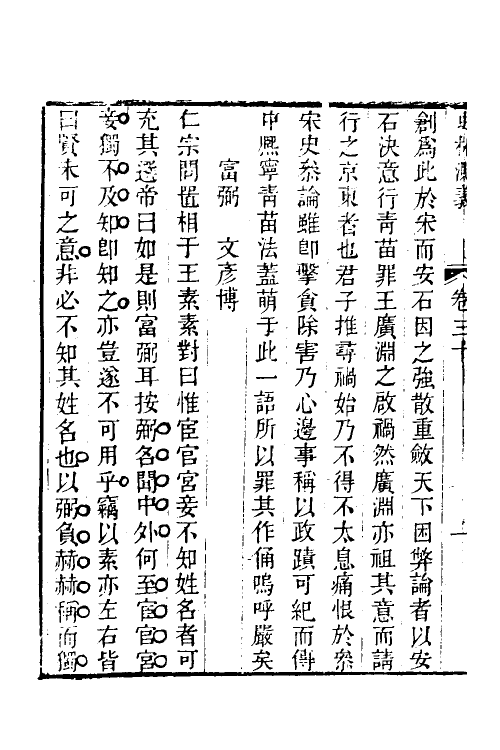 卷三十
創爲此於宋而安石因之強散重斂天下困弊論者以安
石決意行青苗罪王廣淵之啟禍然廣淵亦祖其意而請
行之京東者也君子推尋禍始乃不得不太息痛恨於叅
宋史叅論雖卽擊貪除害乃心邊事稱以政蹟可紀而傳
中熈寧青苗法蓋萌于此一語所以罪其作俑嗚呼嚴矣
富弼　文彥博
仁宗問置相于王素素對曰惟宦官宮妾不知姓名者可
充其選帝曰如是則富弼耳按弼名聞中外何至宦官宮
妾獨不及知卽知之亦豈遂不可用乎竊以素亦左右皆
曰賢未可之意非必不知其姓名也以弼負赫赫稱而獨